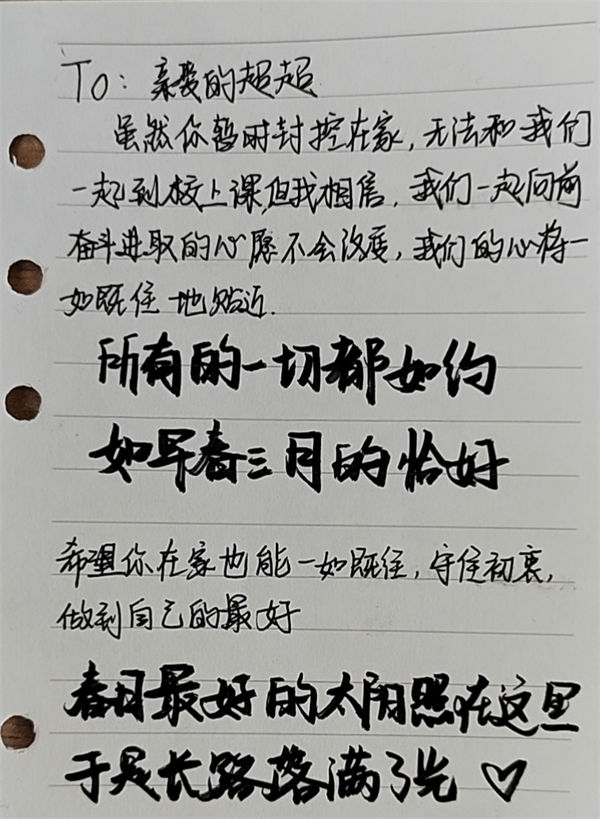 To: 亲爱的超超
虽然你暂时封控在家,无法和我们
一起到校上课,但我相信,我们一起向前
奋斗进取的心愿不会改变,我们的心将一
如既往地贴近.
所有的一切都如约
如早春三月的恰好
希望你在家也能一如既往,守住初衷,
做到自己的最好
春日最好的太阳照在这里
于是长路落满了光 ♡